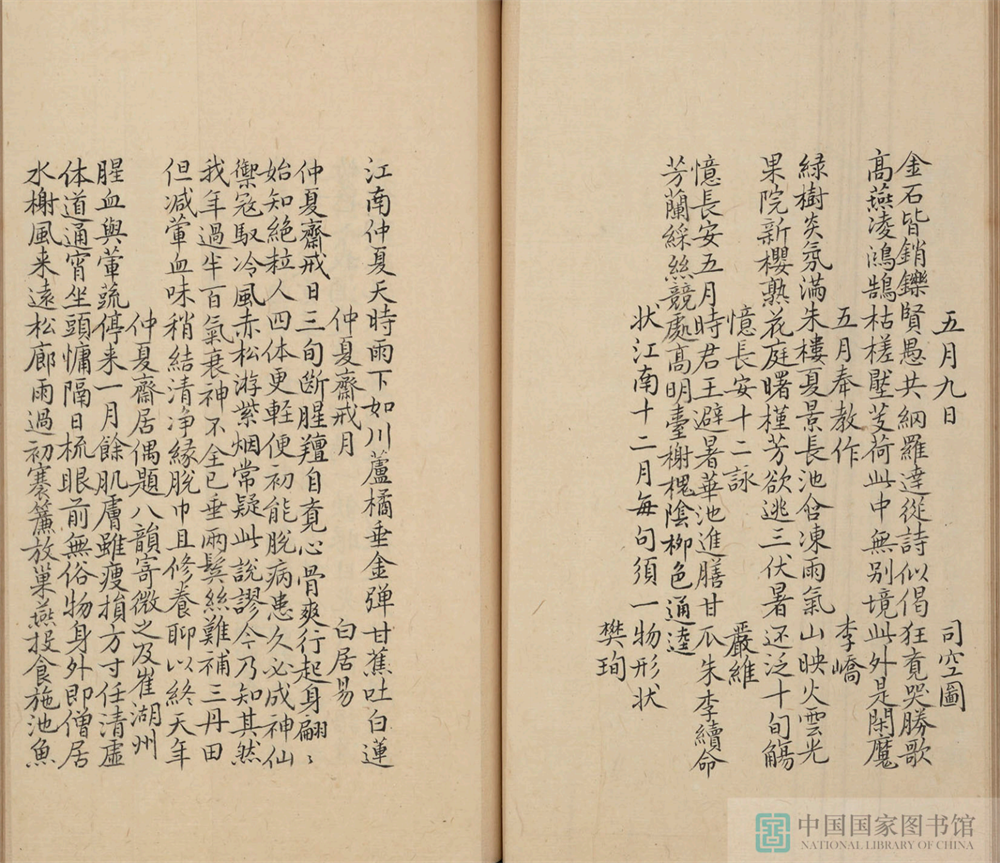 五月九日 司空圖
金石皆銷鑠賢愚共網羅達從詩似偈狂竟哭勝歌
高燕淩鴻鵠枯槎壓芰荷此中無别境此外是閑魔
五月奉教作 李嶠
綠樹炎氛滿朱樓夏景長池含凍雨氣山映火雲光
果院新櫻熟花庭曙槿芳欲逃三伏暑还泛十旬觴
憶長安十二詠 嚴維
憶長安五月時君王避暑華池進膳甘瓜朱李續命
芳蘭綵絲競處高明臺榭槐陰柳色通逵
状江南十二月每句須一物形状
樊珣
江南仲夏天時雨下如川蘆橘垂金彈甘蕉吐白蓮
仲夏齋戒月 白居易
仲夏齋戒日三旬斷腥羶自竟心骨爽行起身翩〻
始知絶粒人四体更軽便初能脱病患久必成神仙
禦冦馭冷風赤松游紫烟常疑此說謬今乃知其然
我年過半百氣衰神不全已垂兩鬢絲難補三丹田
但減葷血味稍結清净緣脱巾且修養聊以終天年
仲夏齋居偶題八韻寄微之及崔湖州
腥血與葷蔬停来一月餘肌膚雖瘦損方寸任清虛
体道通宵坐頭慵隔日梳眼前無俗物身外即僧居
水榭風来遠松廊雨過初褰簾放巢燕投食施池魚
中国国家图书馆
NATIONAL LIBRARY OF CHINA